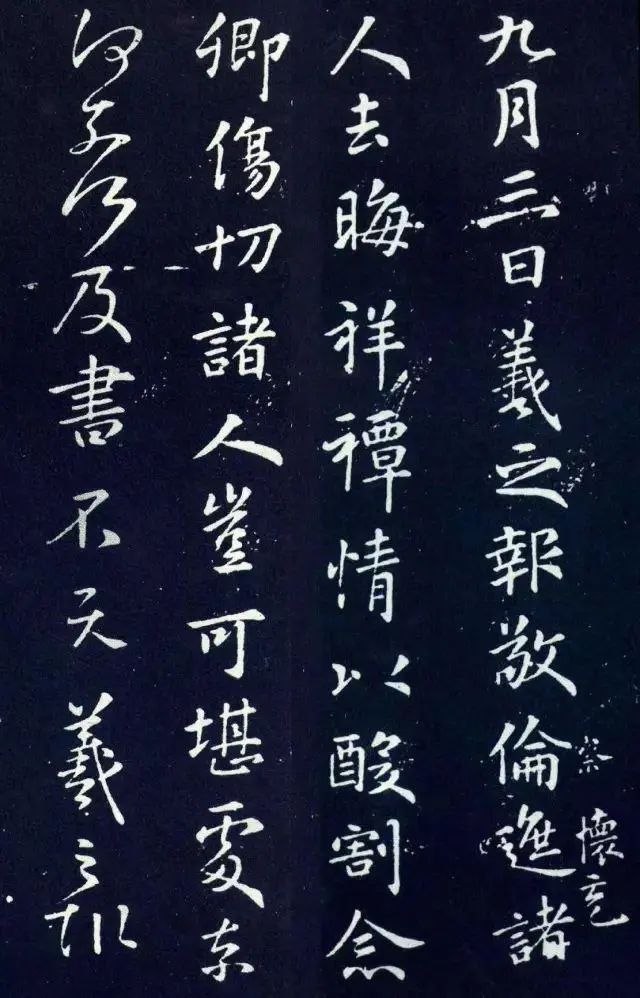 九月三日羲之報敬倫遮諸
察 懷充
人去晦祥禫情以酸割念
卿傷切諸人豈可堪處奈
何奈何及書不 羲之報